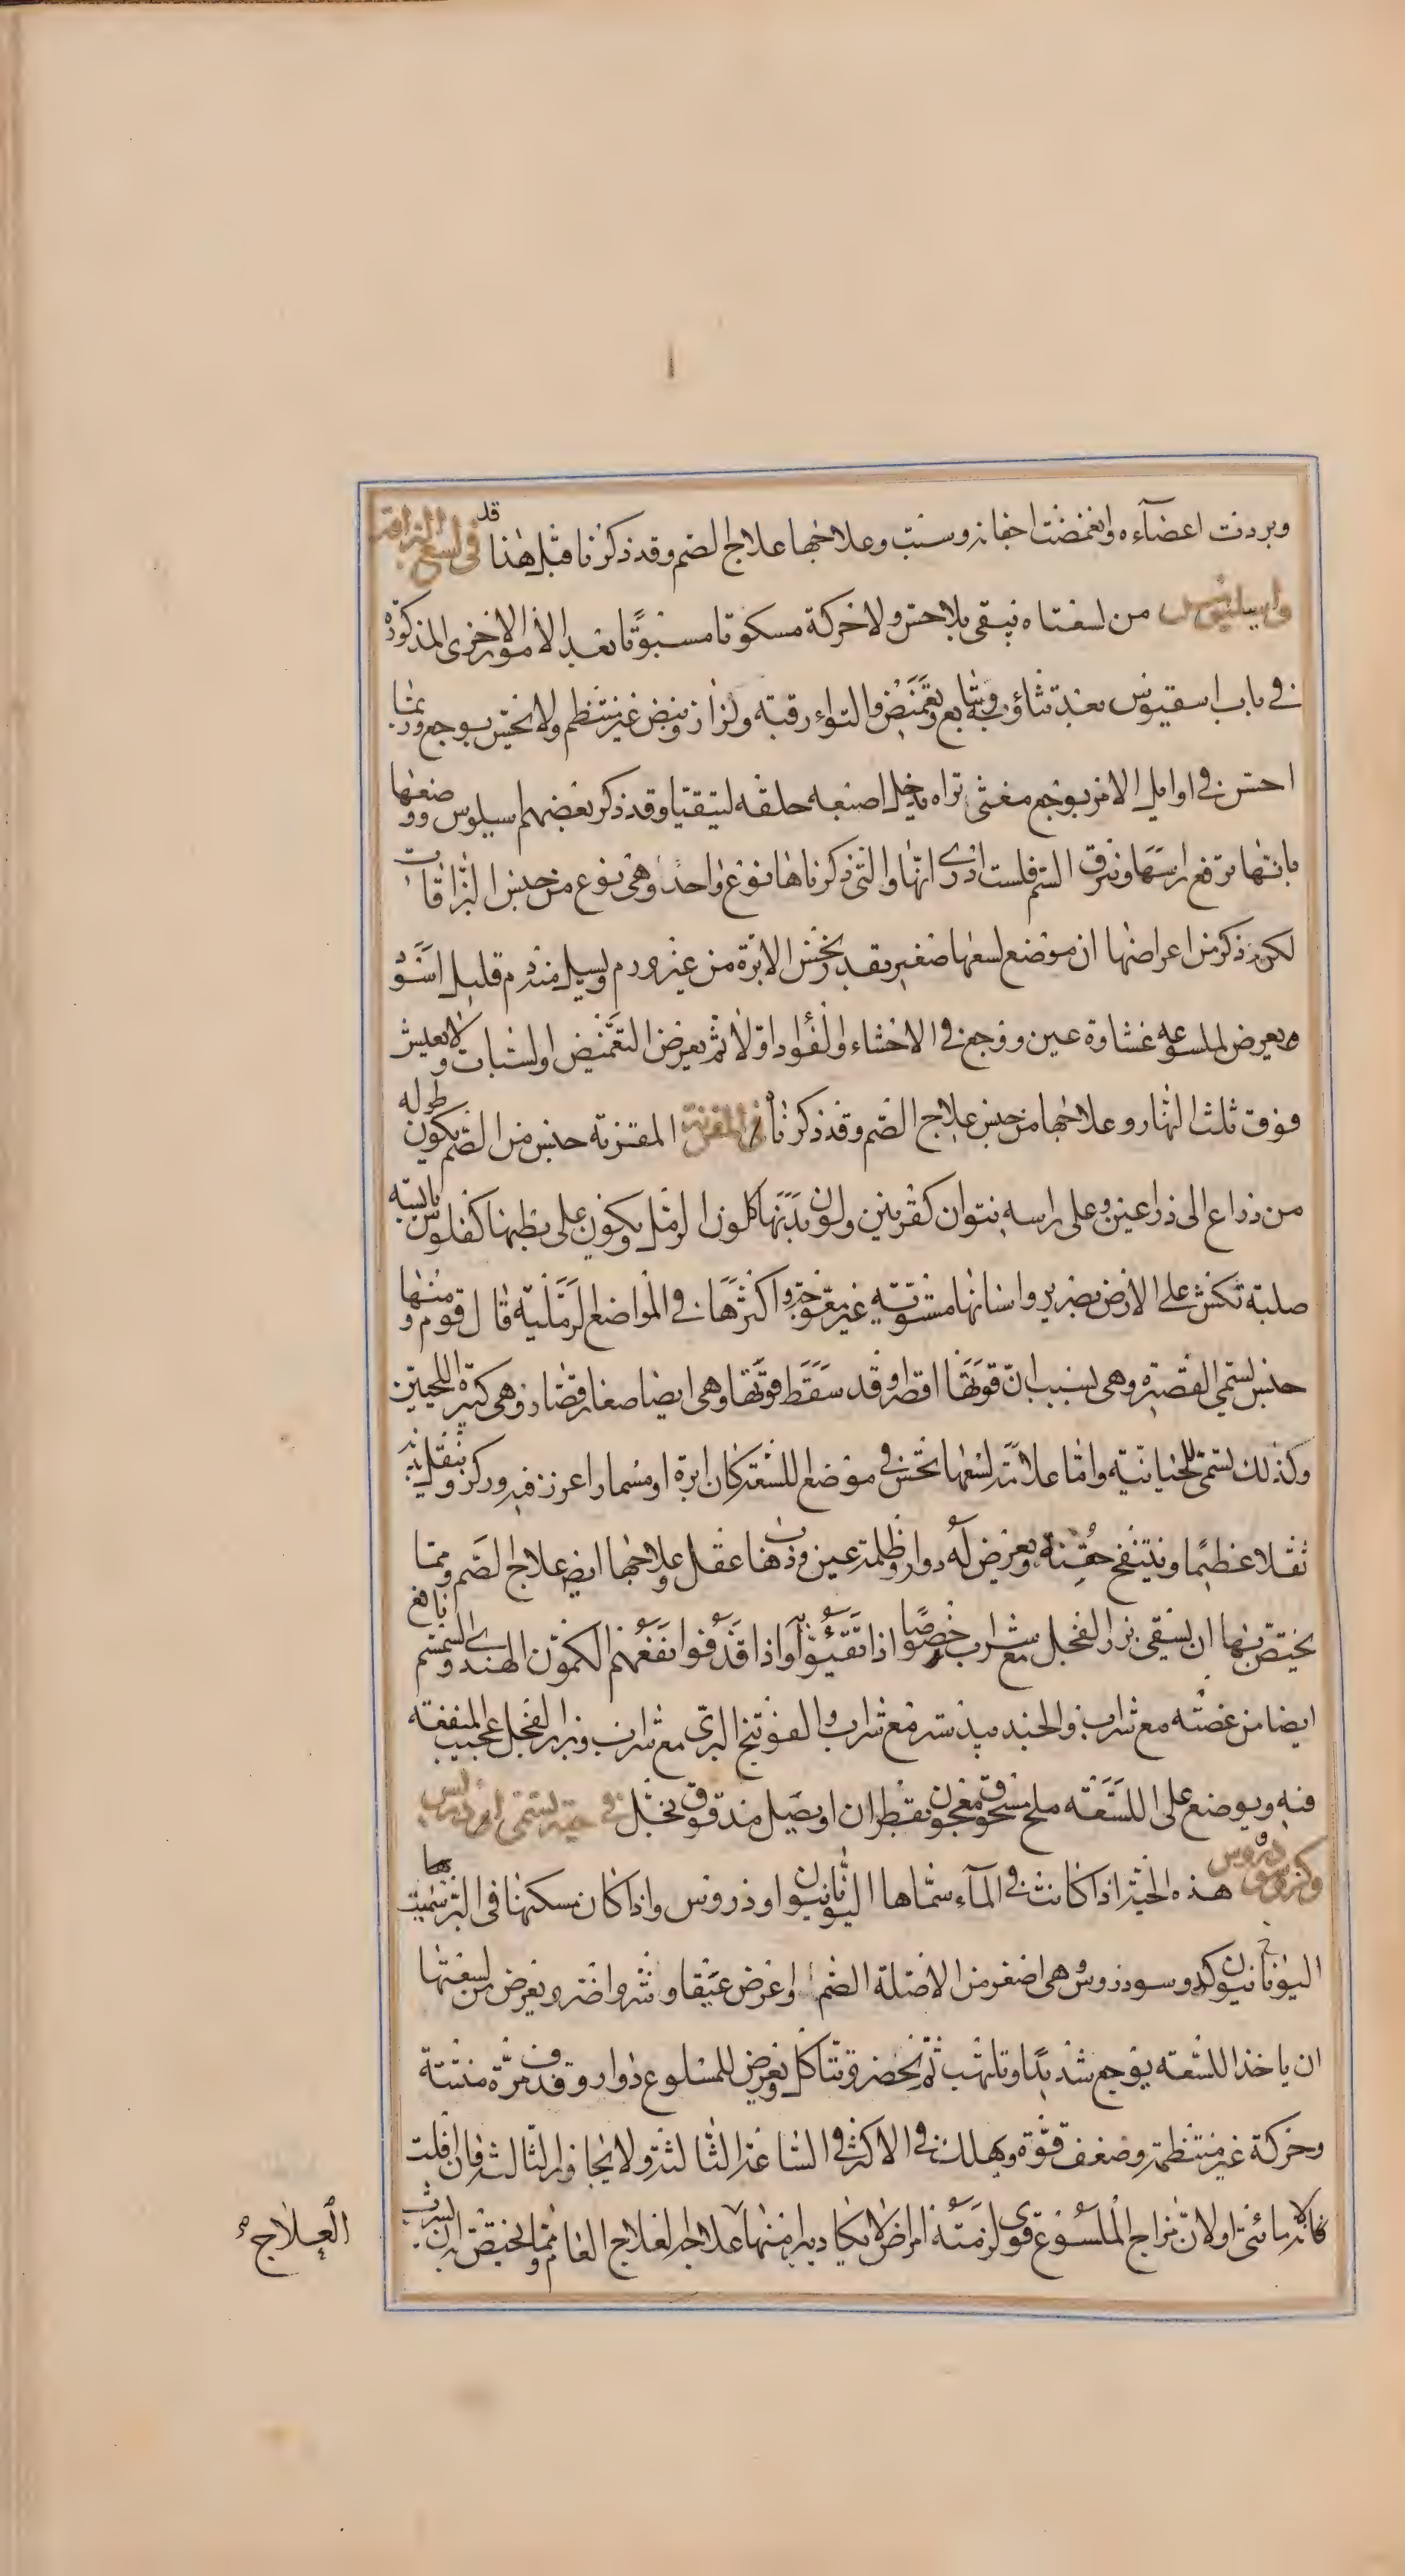 وبردت اعضآءه وانغمضت اجفانه وسبت وعلاجها علاج الصم وقد ذكرنا قبل هذا قد في لسع البزاقة
واسيليوس من لسعتاه فيبقى بلا حس ولا حركة مسكوتا مسبوتًا بعد الامور الاخرى المذكورة
في باب اسقيوس بعد تثاؤب متتابع وتغمّض والتواء رقبته ولزاز ونبض غير منتظم ولا يحس بوجع وربما
احس في اوايل الامر بوجع مغثى تراه يدخل اصبعه حلقه ليتقيّا وقد ذكر بعضهم اسيلوس ووصفها
بانها ترفع راسها وتبزق السم فلست ادرى انها والتى ذكرناها نوع واحد وهى نوع من جنس البزاقات
لكن ذكر من اعراضها ان موضع لسعها صغير بقدر نخس الابرة من غير ورم ويسيل منه دم قليل اسود
ويعرض لملسوعه غشاوة عين ووجع في الاحشاء والفؤاد اوّلا ثم يعرض التغمّض والسبات ولا يعيش
فوق ثلث النهار وعلاجها من جنس علاج الصم وقد ذكرناه في المقرنة المقرنة جنس من الصم يكون طوله
من ذراع الى ذراعين وعلى راسه نتوان كقرنين ولون بدنها كلون الرمل ويكون على بطنها كفلوس يابسة
صلبة تكشش على الارض بصرير واسنانها مستوية غير معوجة واكثرها في المواضع الرملية قال قوم ومنها
جنس يسمى القصيرة وهى بسبب انّ قوتها اقصر وقد سقط قوتها وهى ايضا صغار قصار وهى كبيرة اللحيين
وكذلك تسمى اللحيانية وامّا علامة لسعها يحس في موضع اللسعة كان ابرة او مسمارا غرز فيه وركز ويثقل بدنه
ثقلا عظيمًا وينتفخ جفناه ويعرض له دوار وظلمة عين وذهاب عقل وعلاجها ايضا علاج الصم ومما
يختص بها ان يسقى بزر الفجل مع شراب خصوصًا اذا تقيّؤا واذا قذفوا نفعهم الكمون الهندى والسمسم نافع
ايضا من عضته مع شراب والجند بيدستر مع شراب والفوتنج البرى مع شراب وبزر الفجل عجيب المنفعة
فيه ويوضع على اللسعة ملح مسحوق معجون بقطران او بصل مدقوق بخل في حية تسمى اودريس
وكدوسودروس هذه الحية اذا كانت في المآء سمّاها اليونانيون اوذروس واذا كان مسكنها في البر سميت
اليونانيون كدوسودروس وهى اصغر من الاصلة الصم او عرض عنقا وشر واضر ويعرض من لسعتها
ان ياخذ اللسعة وجع شديدا وتلهب ثم تخضر وتتاكل ويعرض للملسوع دوار وقذف مرّة منتنة
وحركة غير منتظمة وضعف قوّة ويهلك في الاكثر في الساعة الثالثة ولا يجاوز الثالثة فان افلت
كانه مائى او لانّ مزاج الملسوع قوى لزمته امراض لا يكاد يبرا منها علاجه العلاج العام ومما يختص به ان يسرب
العلاج